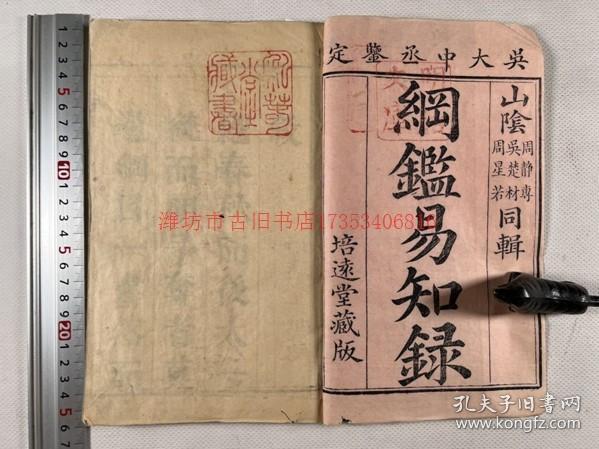 吳大中丞鑒定
山陰
周靜專
吳楚材
周星若
同輯
綱鑑易知録
培遠堂藏版
藏書
潍坊市古旧书店17353406810
孔夫子旧书网
www.kongfz.com
1 2 3 4 5 6 7 8 9 10 1 2 3 4 5 6 7 8 9 20 1 2 3 4 5